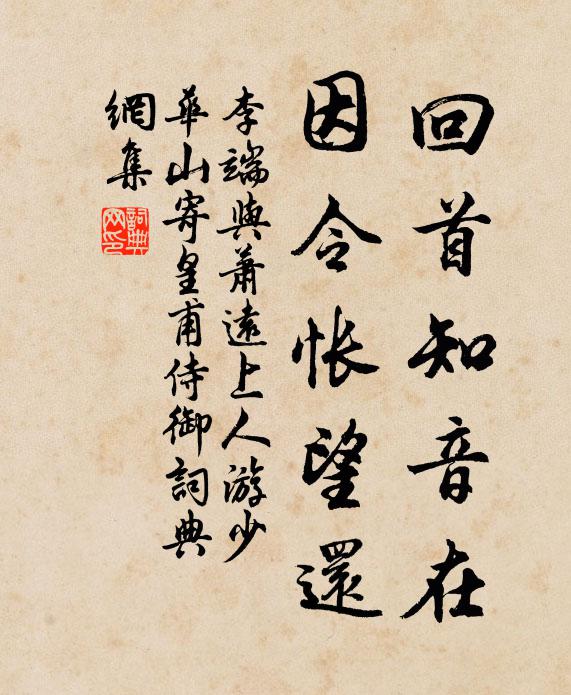 回首知音在
因令悵望還
李端與蕭遠上人游少
華山寄皇甫侍御詞典
網集
詞典
网印